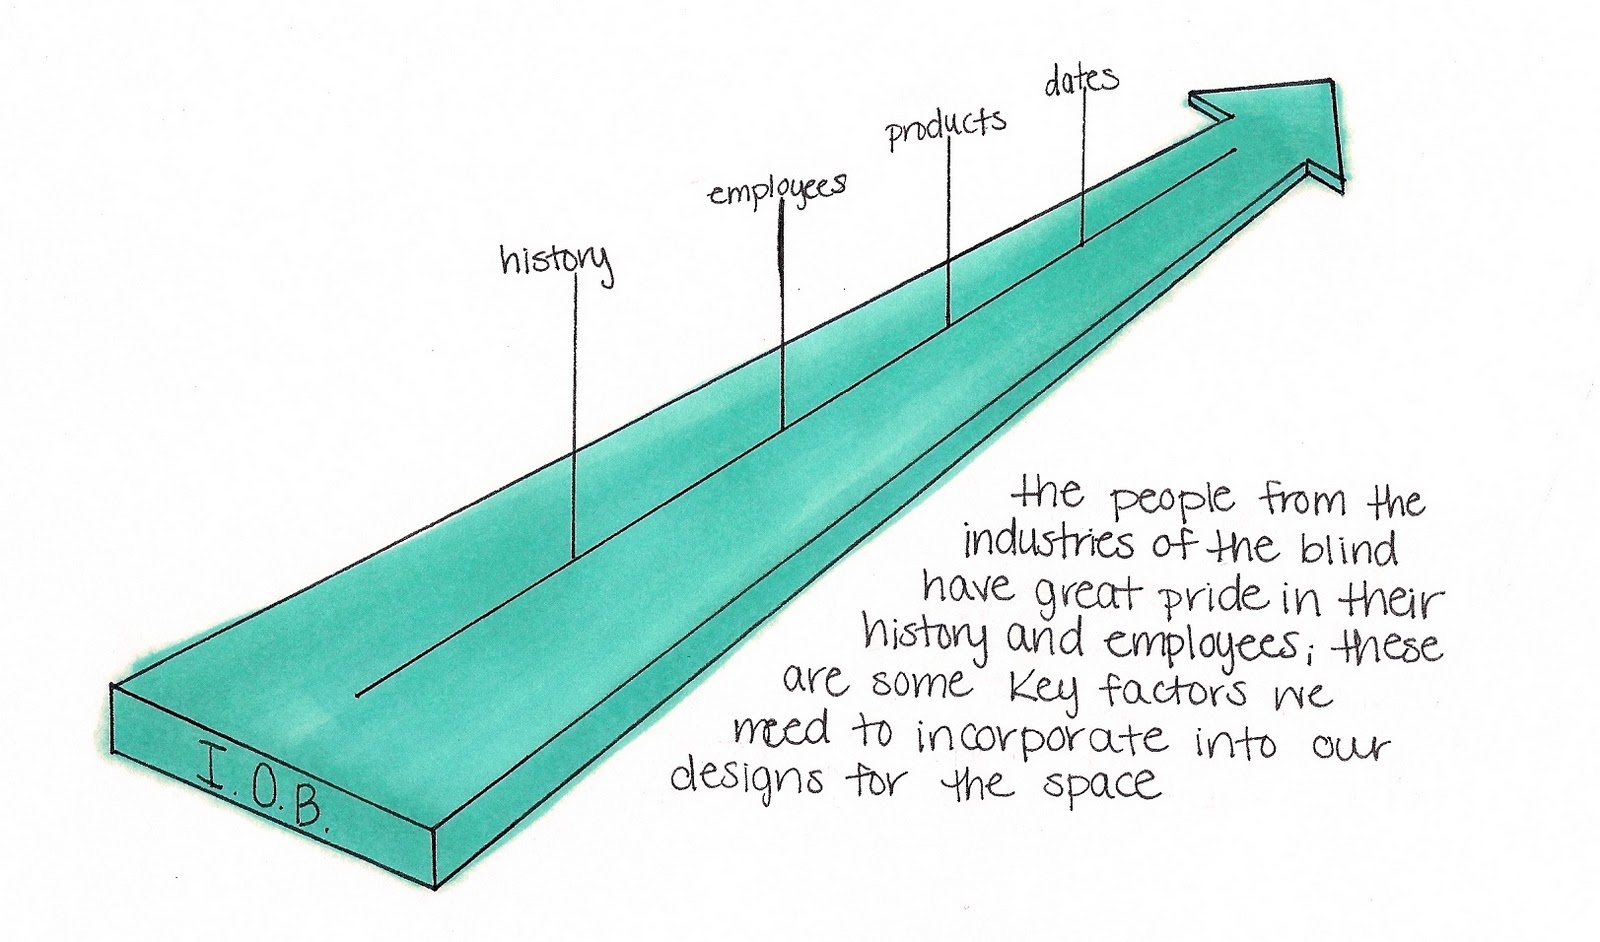 dates
products
employees
history
the people from the
industries of the blind
have great pride in their
history and employees; these
are some key factors we
need to incorporate into our
designs for the space
I.O.B.